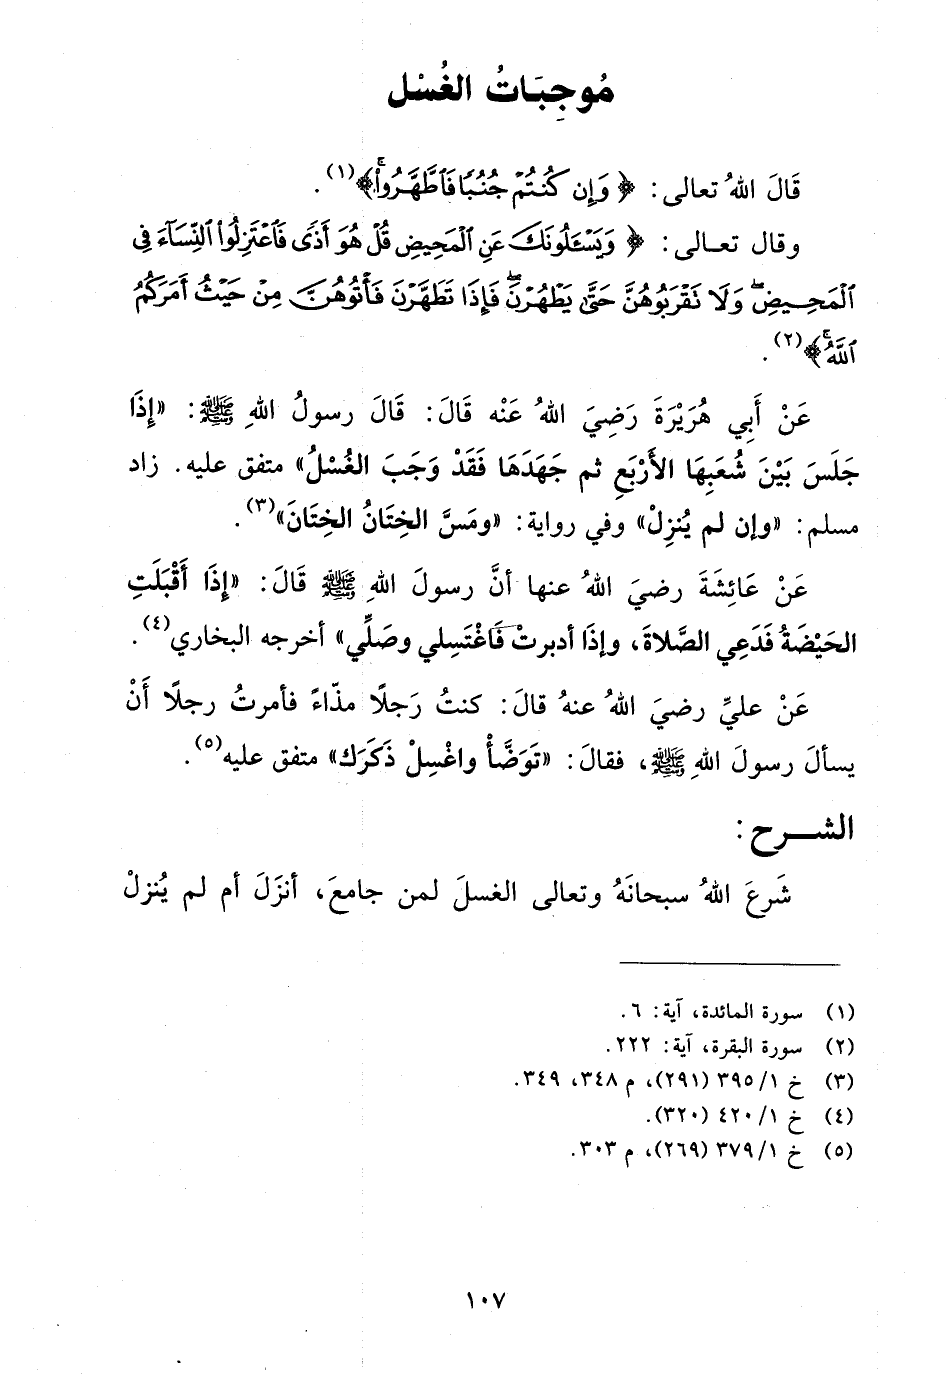 مُوجِبَاتُ الغُسْل
قَالَ اللهُ تعالى: ﴿ وَإِن كُنتُمْ جُنُبًا فَٱطَّهَّرُوا۟ۚ ﴾(١).
وقال تعالى: ﴿ وَيَسْـَٔلُونَكَ عَنِ ٱلْمَحِيضِ قُلْ هُوَ أَذًى فَٱعْتَزِلُوا۟ ٱلنِّسَآءَ فِى
ٱلْمَحِيضِۖ وَلَا تَقْرَبُوهُنَّ حَتَّىٰ يَطْهُرْنَۖ فَإِذَا تَطَهَّرْنَ فَأْتُوهُنَّ مِنْ حَيْثُ أَمَرَكُمُ
ٱللَّهُۚ ﴾(٢).
عَنْ أَبِي هُرَيْرَةَ رَضِيَ اللهُ عَنْه قَالَ: قَالَ رسولُ اللهِ ﷺ: «إِذَا
جَلَسَ بَيْنَ شُعَبِهَا الأَرْبَعِ ثم جَهَدَهَا فَقَدْ وَجَبَ الغُسْلُ» متفق عليه. زاد
مسلم: «وإن لم يُنزِلْ» وفي رواية: «ومَسَّ الخِتَانُ الخِتَانَ»(٣).
عَنْ عَائِشَةَ رضيَ اللهُ عنها أنَّ رسولَ اللهِ ﷺ قَالَ: «إِذَا أَقْبَلَتِ
الحَيْضَةُ فَدَعِي الصَّلاةَ، وإذَا أدبرتْ فَاغْتَسِلي وصَلِّي» أخرجه البخاري(٤).
عَنْ عليٍّ رضيَ اللهُ عنهُ قالَ: كنتُ رَجلًا مذّاءً فأمرتُ رجلًا أَنْ
يسألَ رسولَ اللهِ ﷺ، فقالَ: «تَوَضَّأْ واغْسِلْ ذَكَرَك» متفق عليه(٥).
الشـــرح:
شَرعَ اللهُ سبحانَهُ وتعالى الغسلَ لمن جامعَ، أنزَلَ أم لم يُنزلْ
(١) سورة المائدة، آية: ٦.
(٢) سورة البقرة، آية: ٢٢٢.
(٣) خ ١/ ٣٩٥ (٢٩١)، م ٣٤٨، ٣٤٩.
(٤) خ ١/ ٤٢٠ (٣٢٠).
(٥) خ ١/ ٣٧٩ (٢٦٩)، م ٣٠٣.
١٠٧